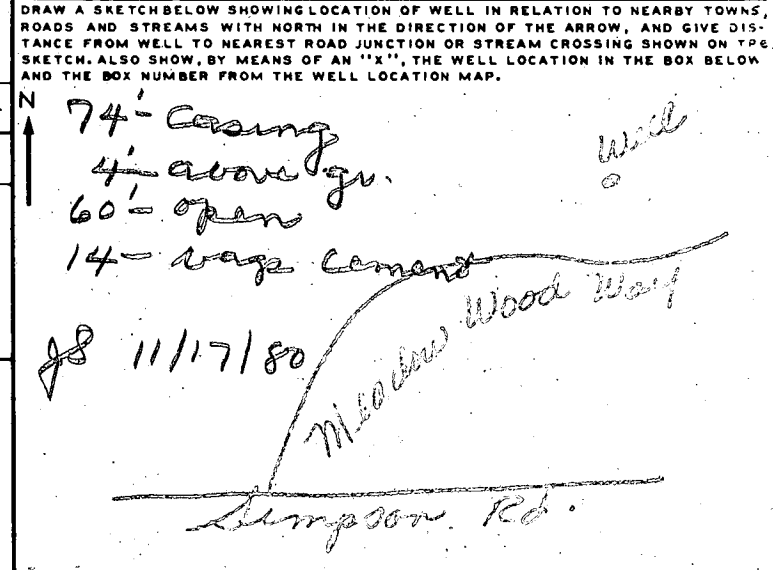 DRAW A SKETCH BELOW SHOWING LOCATION OF WELL IN RELATION TO NEARBY TOWNS,
ROADS AND STREAMS WITH NORTH IN THE DIRECTION OF THE ARROW, AND GIVE DIS-
TANCE FROM WELL TO NEAREST ROAD JUNCTION OR STREAM CROSSING SHOWN ON THE
SKETCH. ALSO SHOW, BY MEANS OF AN "X", THE WELL LOCATION IN THE BOX BELOW
AND THE BOX NUMBER FROM THE WELL LOCATION MAP.
N
74'- Casing
4'- above gr.
60'- open
14- bags cement
JS 11/17/80
Well
Meadow Wood Way
Simpson Rd.